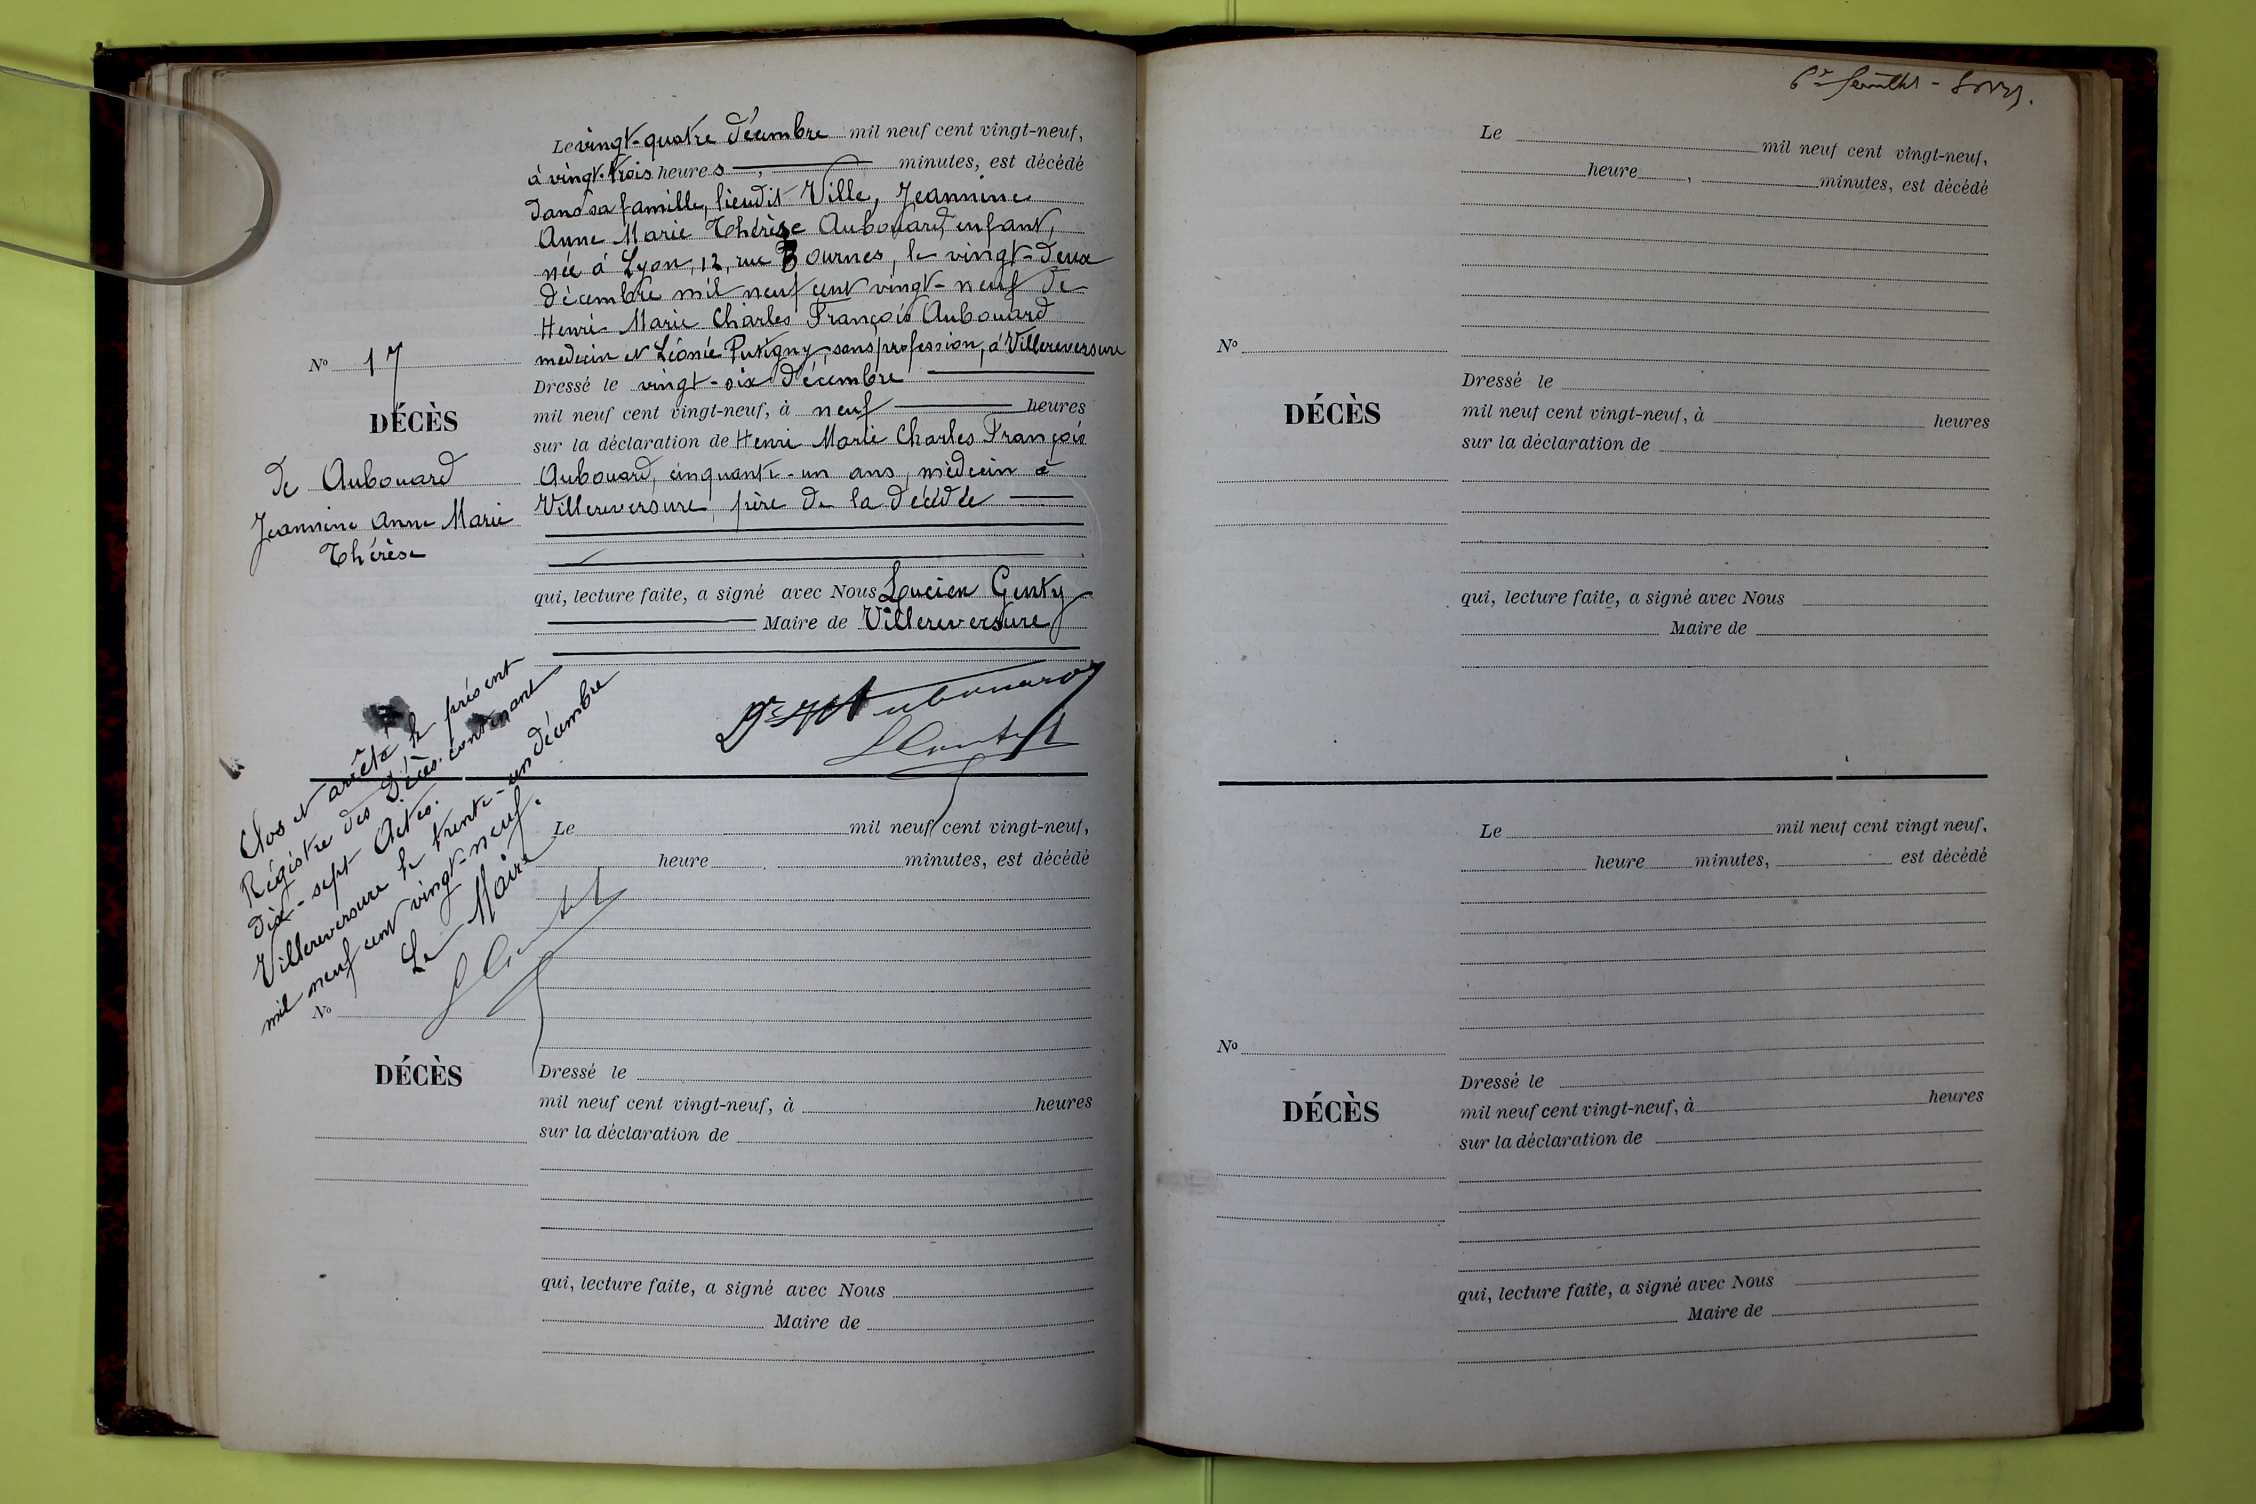 Le vingt-quatre décembre mil neuf cent vingt-neuf,
à vingt-trois heures, minutes, est décédé
dans sa famille, lieudit Ville, Jeannine
Anne Marie Thérèse Aubouard, enfant,
née à Lyon, 12, rue Bournes, le vingt-deux
décembre mil neuf cent vingt-neuf de
Henri Marie Charles François Aubouard
medecin et Léonie Putigny, sans profession, à Villereversure
Dressé le vingt-six décembre
mil neuf cent vingt-neuf, à neuf heures
sur la déclaration de Henri Marie Charles François
Aubouard, cinquante-un ans, médecin à
Villereversure, père de la décédée
qui, lecture faite, a signé avec Nous Lucien Genty
Maire de Villereversure
No 17
DÉCÈS
de Aubouard
Jeannine Anne Marie
Thérèse
Dr Aubouard
Clos et arrêté le présent
Régistre des Décès contenant
dix-sept Actes.
Villereversure le trente-un décembre
mil neuf cent vingt-neuf.
Le Maire
Le mil neuf cent vingt-neuf,
heure , minutes, est décédé
No
DÉCÈS
Dressé le
mil neuf cent vingt-neuf, à heures
sur la déclaration de
qui, lecture faite, a signé avec Nous
Maire de
Le mil neuf cent vingt-neuf,
heure , minutes, est décédé
No
DÉCÈS
Dressé le
mil neuf cent vingt-neuf, à heures
sur la déclaration de
qui, lecture faite, a signé avec Nous
Maire de
Le mil neuf cent vingt neuf,
heure minutes, est décédé
No
DÉCÈS
Dressé le
mil neuf cent vingt-neuf, à heures
sur la déclaration de
qui, lecture faite, a signé avec Nous
Maire de